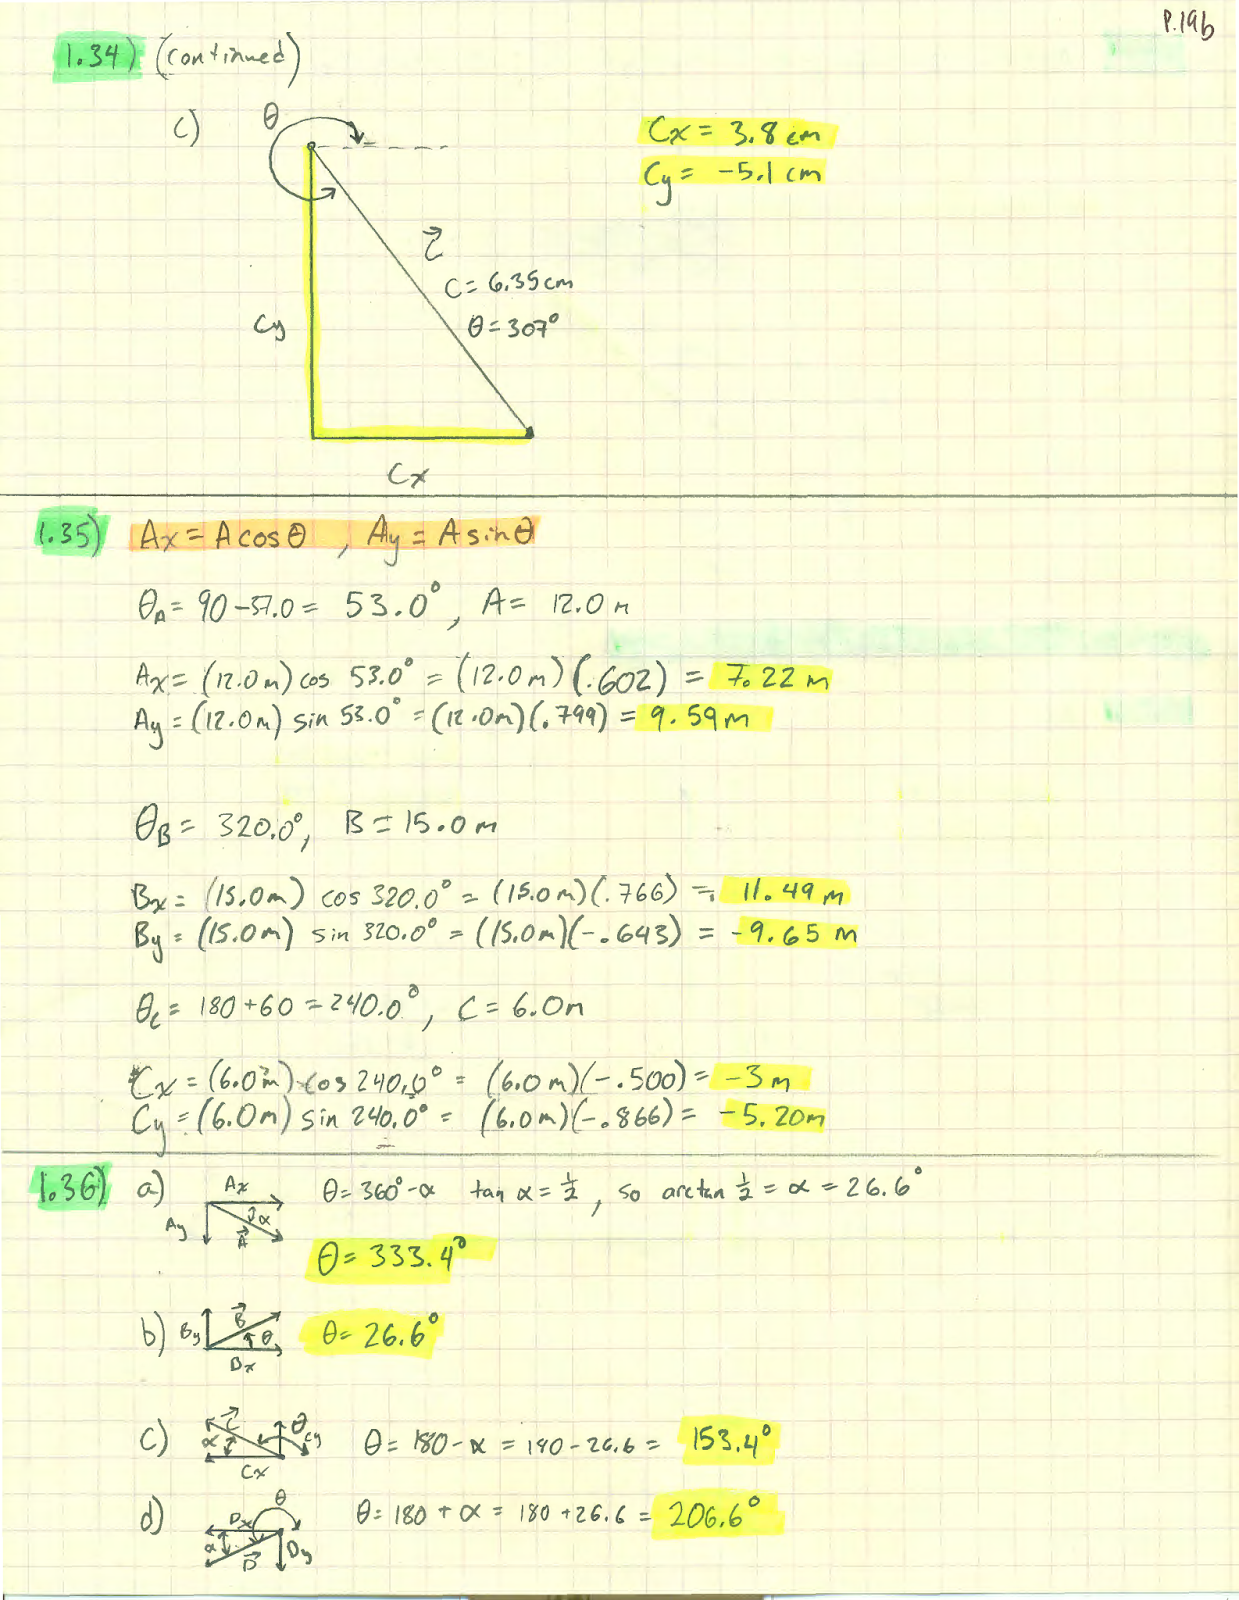 P.19b
1.34) (continued)
c)
θ
Cx = 3.8 cm
Cy = -5.1 cm
C⃗
C = 6.35 cm
θ = 307°
Cy
Cx
1.35) Ax = A cos θ , Ay = A sin θ
θA = 90 - 37.0 = 53.0° , A = 12.0 m
Ax = (12.0 m) cos 53.0° = (12.0 m)(.602) = 7.22 m
Ay = (12.0 m) sin 53.0° = (12.0m)(.799) = 9.59 m
θB = 320.0°, B = 15.0 m
Bx = (15.0m) cos 320.0° = (15.0 m)(.766) = 11.49 m
By = (15.0m) sin 320.0° = (15.0m)(-.643) = -9.65 m
θc = 180 + 60 = 240.0° , C = 6.0m
Cx = (6.0m) cos 240.0° = (6.0 m)(-.500) = -3 m
Cy = (6.0m) sin 240.0° = (6.0m)(-.866) = -5.20m
1.36) a) Ax θ = 360° - α tan α = 1/2 , so arctan 1/2 = α = 26.6°
Ay α A⃗
θ = 333.4°
b) By B⃗ θ θ = 26.6°
Bx
c) C⃗ θ α Cy θ = 180 - α = 180 - 26.6 = 153.4°
Cx
d) θ θ = 180 + α = 180 + 26.6 = 206.6°
Dx α D⃗ Dy